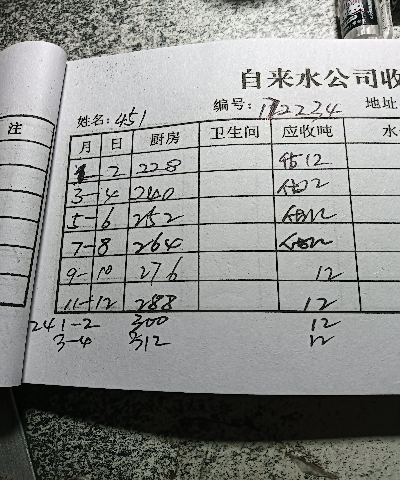 自来水公司收
姓名: 451 编号: 172234 地址
注
月 日 厨房 卫生间 应收吨 水
1 2 228 12
3-4 240
5-6 252
7-8 264
9-10 276 12
11-12 288 12
241-2 300 12
3-4 312 12